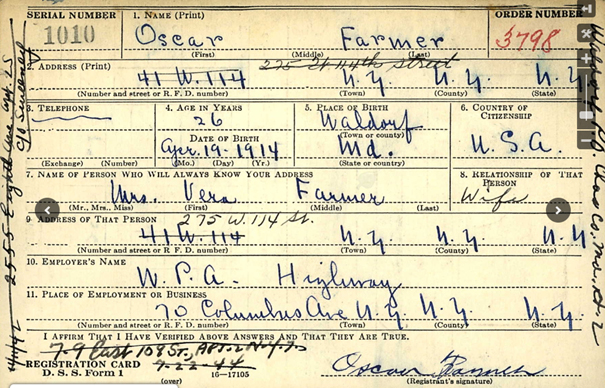 SERIAL NUMBER
1010
1. NAME (Print)
Oscar Farmer
(First) (Middle) (Last)
ORDER NUMBER
3798
2. ADDRESS (Print)
275 W. 114th Street
41 W. 114 N.Y. N.Y. N.Y.
(Number and street or R. F. D. number) (Town) (County) (State)
3. TELEPHONE
(Exchange) (Number)
4. AGE IN YEARS
26
DATE OF BIRTH
Apr. 19-1914
(Mo.) (Day) (Yr.)
5. PLACE OF BIRTH
Waldorf
(Town or county)
Md.
(State or country)
6. COUNTRY OF CITIZENSHIP
U.S.A.
7. NAME OF PERSON WHO WILL ALWAYS KNOW YOUR ADDRESS
Mrs. Vera Farmer
(Mr., Mrs., Miss) (First) (Middle) (Last)
8. RELATIONSHIP OF THAT PERSON
Wife
9. ADDRESS OF THAT PERSON
275 W. 114 St.
41 W. 114 N.Y. N.Y. N.Y
(Number and street or R. F. D. number) (Town) (County) (State)
10. EMPLOYER'S NAME
W.P.A. Highway
11. PLACE OF EMPLOYMENT OR BUSINESS
70 Columbus Ave N.Y. N.Y. N.Y
(Number and street or R. F. D. number) (Town) (County) (State)
I AFFIRM THAT I HAVE VERIFIED ABOVE ANSWERS AND THAT THEY ARE TRUE.
7-9 East 108 St., Apt. 2 N.Y.
REGISTRATION CARD 9-22-44
D. S. S. Form 1 16—17105
(over)
Oscar Farmer
(Registrant's signature)
2555 Eighth Ave Apt. 25
Waldorf, Md. Chas Co. Md. Rt. 2